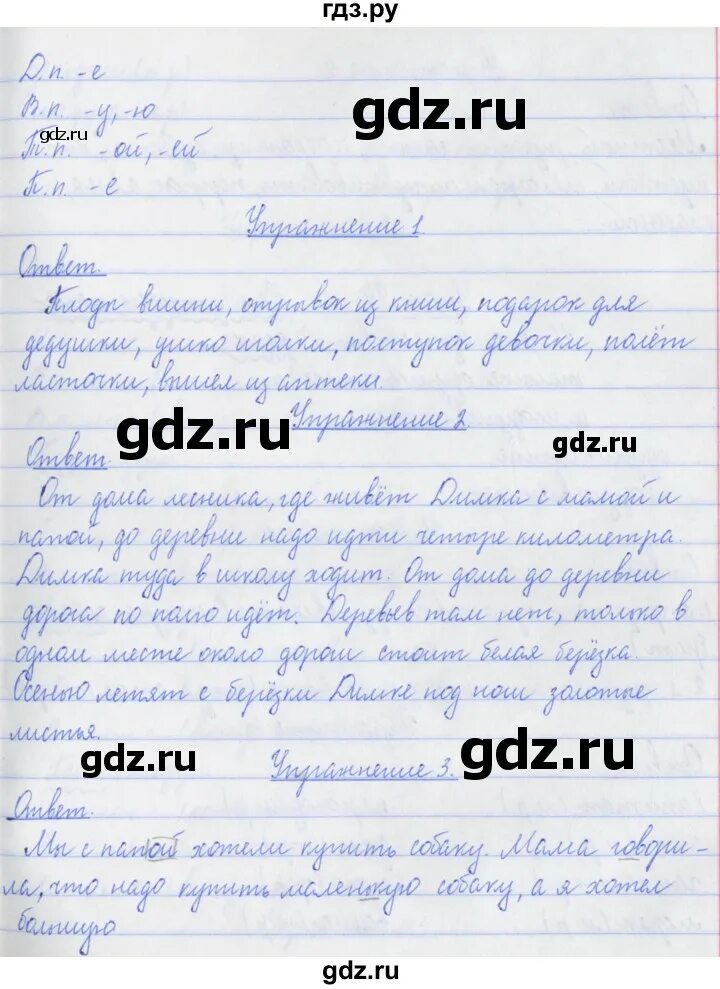 гдз.ру
Д.п. -е
В.п. -у, -ю
gdz.ru
gdz.ru
Т.п. -ой, -ей
П.п. -е
Упражнение 1
Ответ.
Плоды вишни, отрывок из книги, подарок для
дедушки, ушко иголки, поступок девочки, полёт
ласточки, вышел из аптеки.
Упражнение 2.
gdz.ru
gdz.ru
Ответ.
От дома лесника, где живёт Димка с мамой и
папой, до деревни надо идти четыре километра.
Димка туда в школу ходит. От дома до деревни
дорога по полю идёт. Деревьев там нет, только в
одном месте около дороги стоит белая берёзка.
Осенью летят с берёзки Димке под ноги золотые
листья.
gdz.ru
gdz.ru
Упражнение 3.
Ответ.
Мы с папой хотели купить собаку. Мама говори-
ла, что надо купить маленькую собаку, а я хотел
большую
gdz.ru